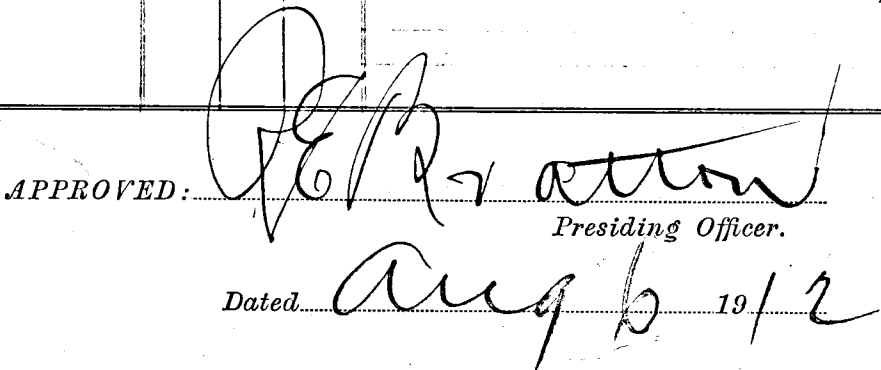 APPROVED: P E Bratton
Presiding Officer.
Dated Aug 6 1912